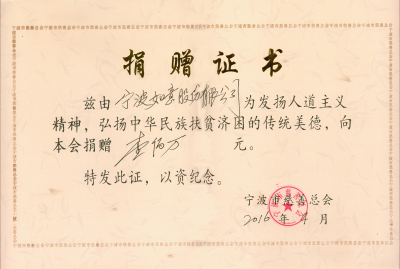 捐赠证书
兹由宁波如意股份有限公司为发扬人道主义
精神，弘扬中华民族扶贫济困的传统美德，向
本会捐赠 壹佰万 元。
特发此证，以资纪念。
宁波市慈善总会
2016年4月